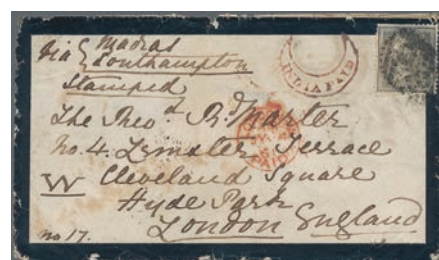 via { Madras
Southampton
Stamped
INDIA PAID
The Revd. R. Marter
No. 4. Terrace
W Cleveland Square
Hyde Park
London England
no 17.
PAID